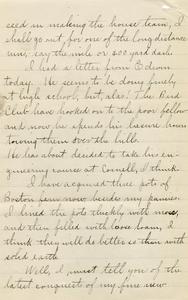 ceed in making the house team, I
shall go out for one of the long distance
runs, say the mile or 800 yard dash.
I had a letter from Edson
today. He seems to be doing finely
at high school, but, alas! The Bird
Club have hooked on to the poor fellow
and now he spends his leisure hours
towing them over the hills.
He has about decided to take his en-
gineering course at Cornell, I think.
I have acquired three pots of
Boston fern now besides my
I lined the pots thickly with moss,
and then filled with loam, I
think they will do better so than with
solid earth
Well, I must tell you of the
latest conquest of my fine new